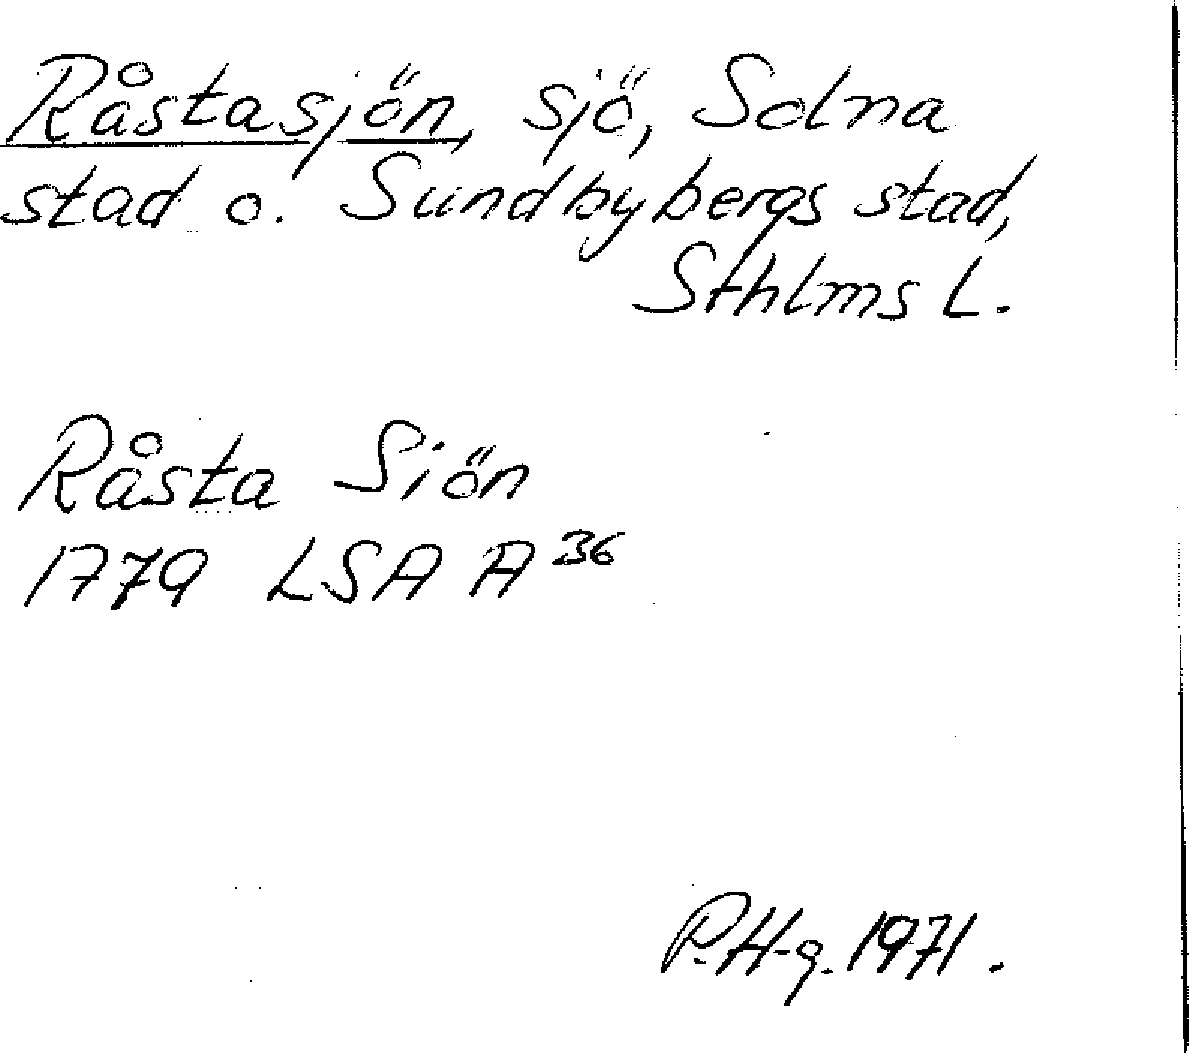 Råstasjön, sjö, Solna
stad o. Sundbybergs stad,
Sthlms L.
Råsta Siön
1779 LSA A 36
P.H-g. 1971.